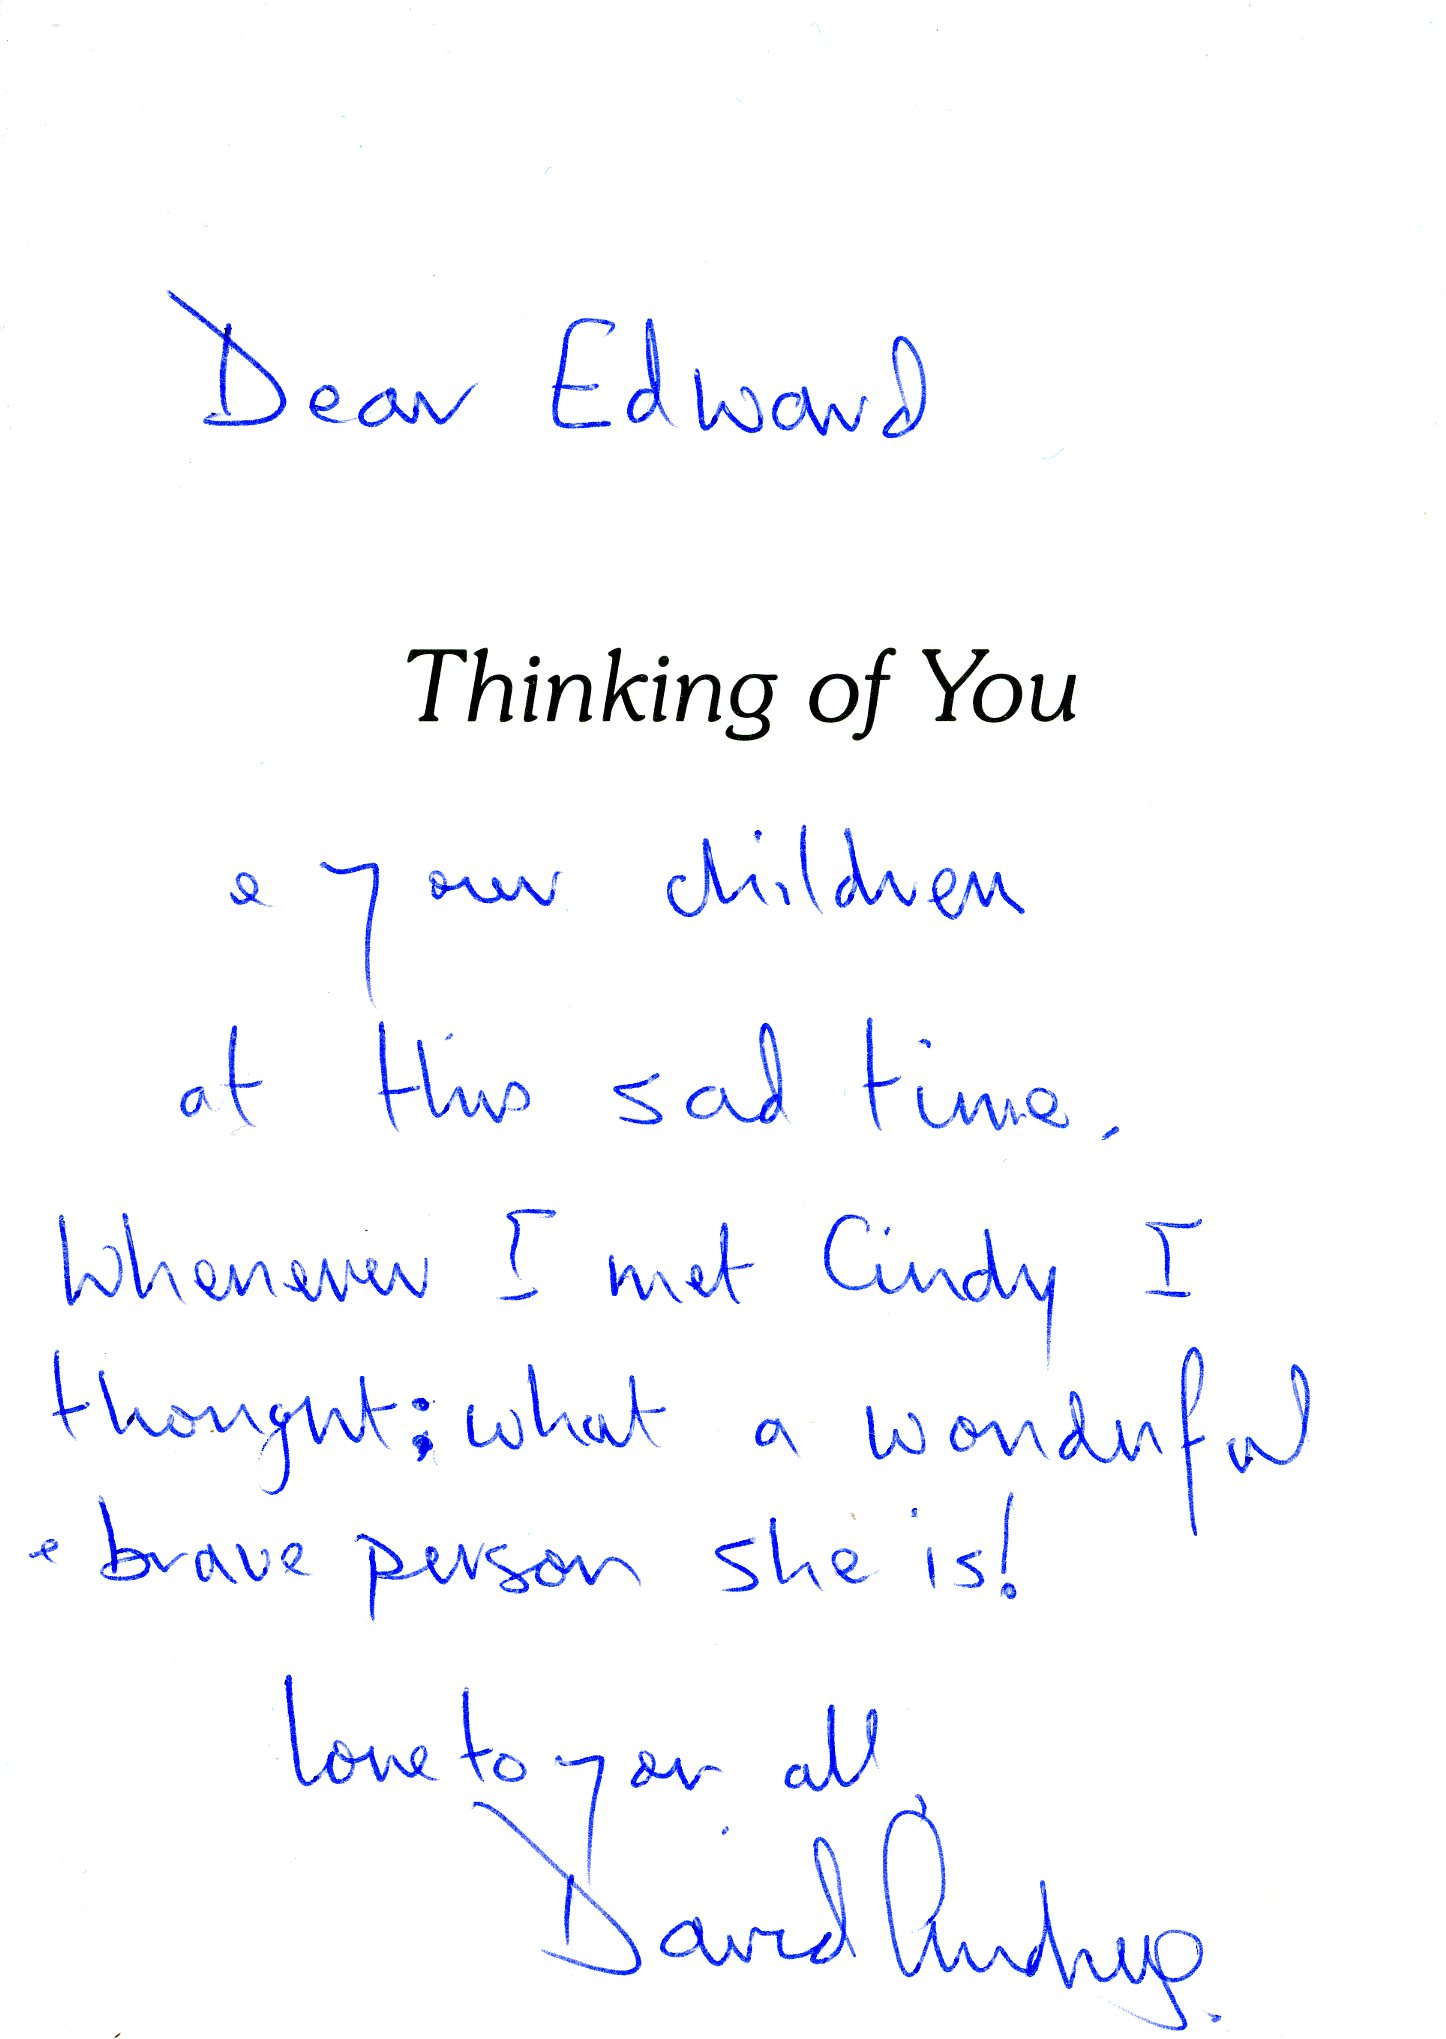 Dear Edward
Thinking of You
e your children
at this sad time.
Whenever I met Cindy I
thought: what a wonderful
e brave person she is!
love to you all,
David